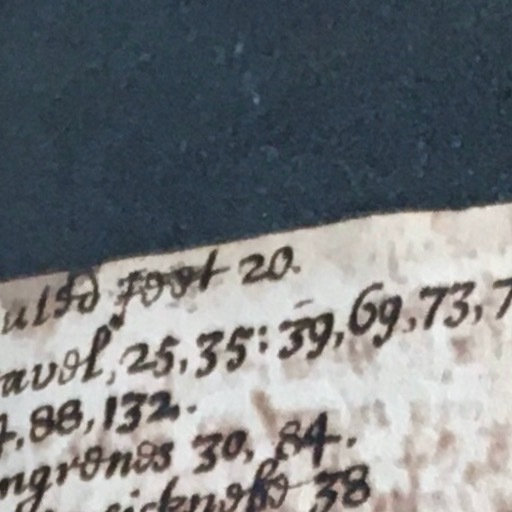 uisd foot 20.
avel, 25, 35: 39, 69, 73, 7
4, 88, 132.
ngrenes 30, 84.
sickness 38